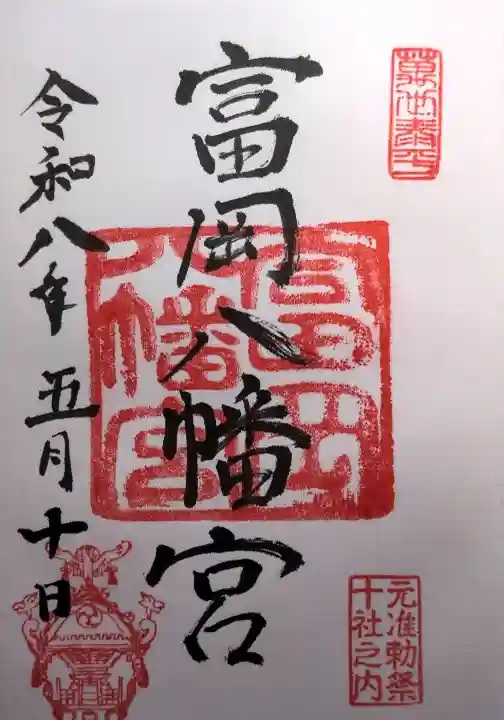 萬世泰平
富岡八幡宮
富岡
八幡宮
元准勅祭
十社之内
令和八年五月十日